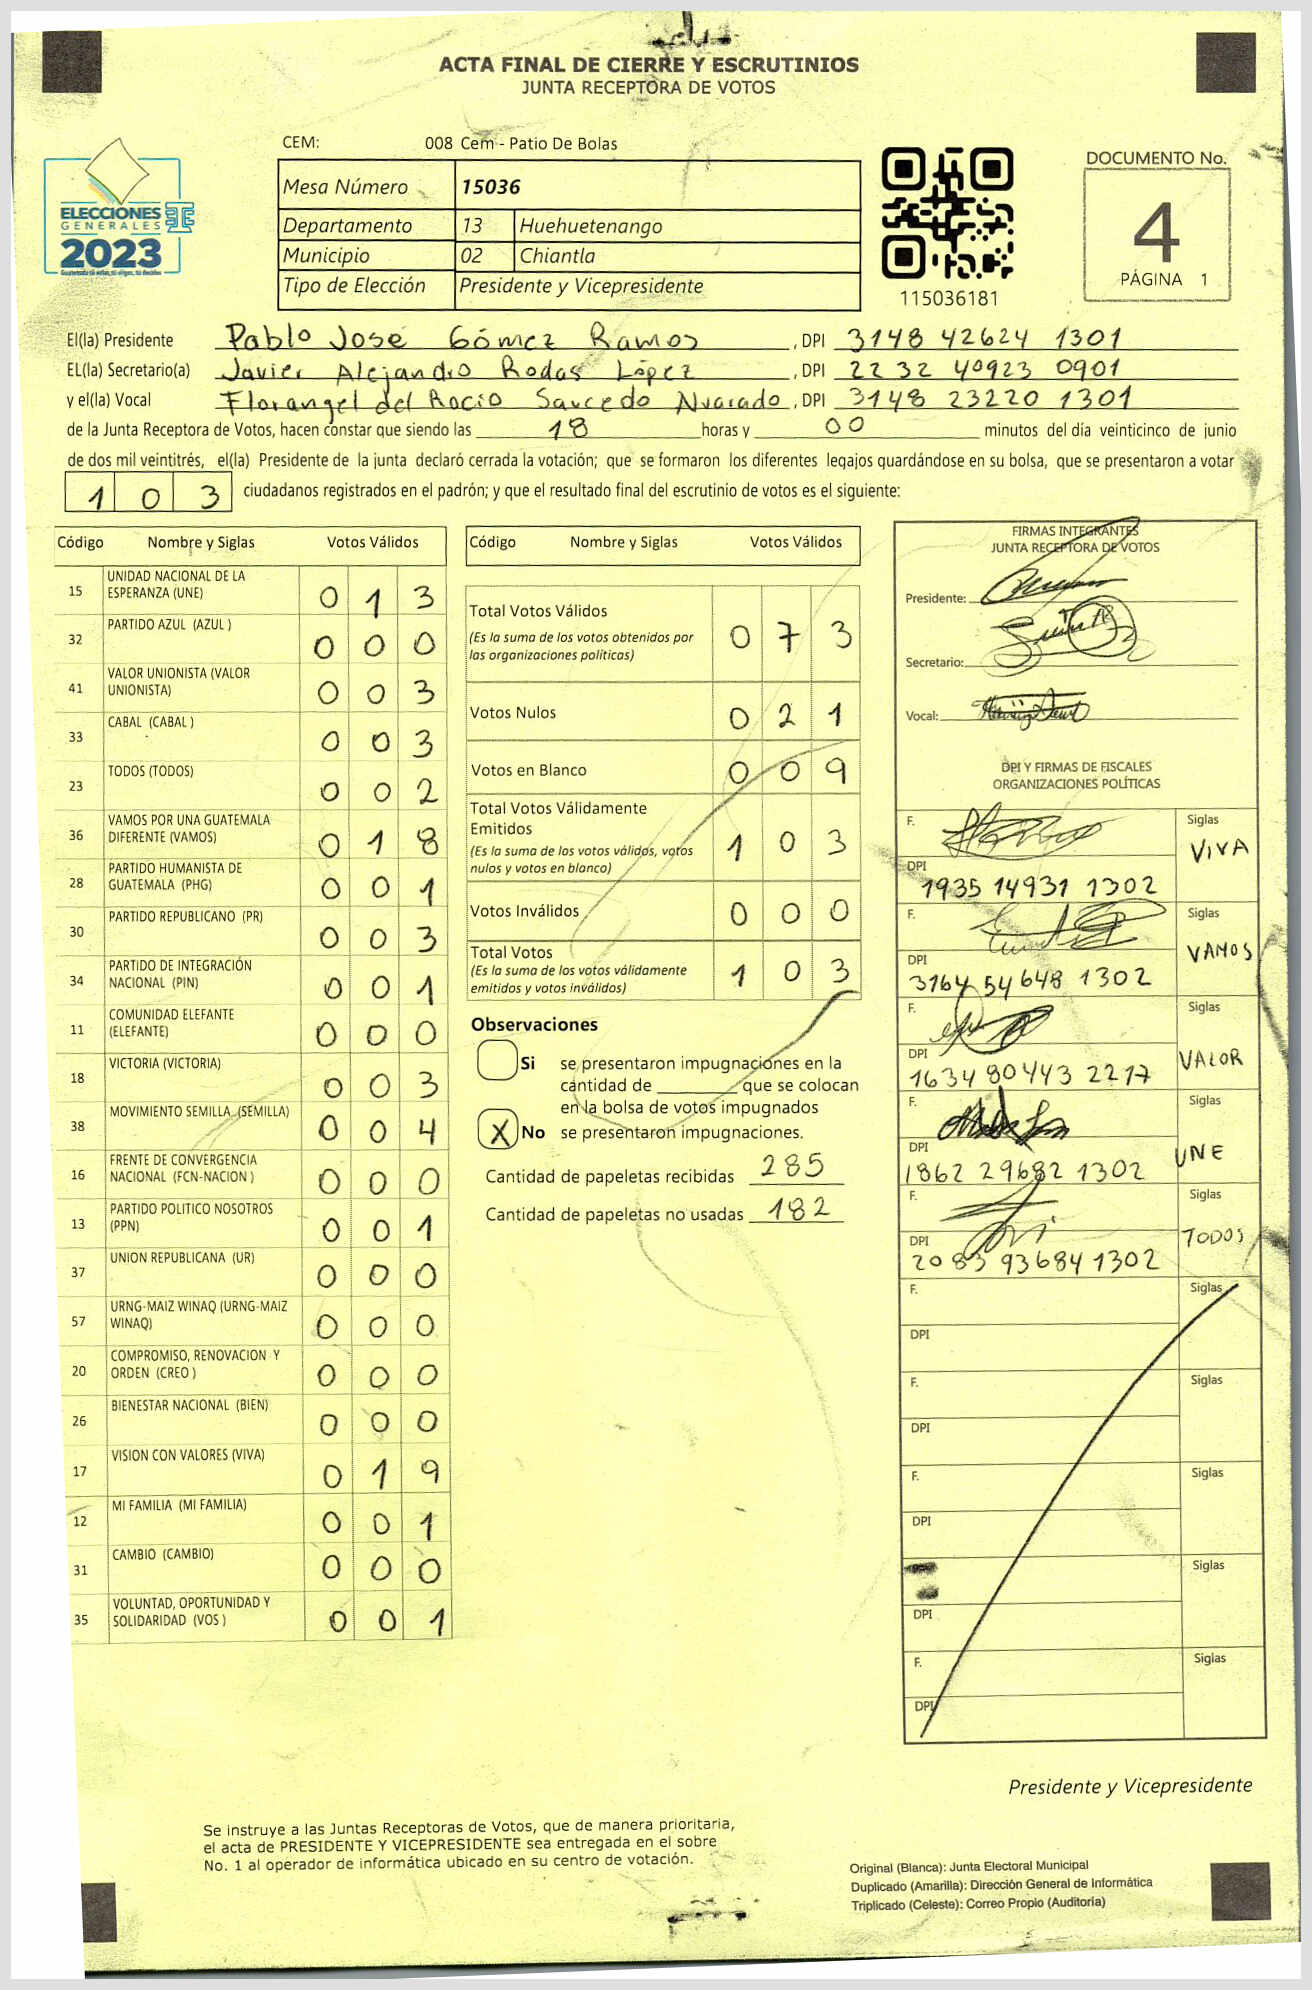 ACTA FINAL DE CIERRE Y ESCRUTINIOS
JUNTA RECEPTORA DE VOTOS
CEM: 008 Cem - Patio De Bolas
Mesa Número 15036
Departamento 13 Huehuetenango
Municipio 02 Chiantla
Tipo de Elección Presidente y Vicepresidente
ELECCIONES
GENERALES
2023
115036181
DOCUMENTO No.
4
PÁGINA 1
El(la) Presidente Pablo José Gómez Ramos, DPI 3148 42624 1301
EL(la) Secretario(a) Javier Alejandro Rodas López, DPI 2232 40923 0901
y el(la) Vocal Florangel del Rocio Saucedo Alvarado, DPI 3148 23220 1301
de la Junta Receptora de Votos, hacen constar que siendo las 18 horas y 00 minutos del día veinticinco de junio
de dos mil veintitrés, el(la) Presidente de la junta declaró cerrada la votación; que se formaron los diferentes legajos guardándose en su bolsa, que se presentaron a votar
103 ciudadanos registrados en el padrón; y que el resultado final del escrutinio de votos es el siguiente:
Código Nombre y Siglas Votos Válidos
15 UNIDAD NACIONAL DE LA
ESPERANZA (UNE) 0 1 3
32 PARTIDO AZUL (AZUL ) 0 0 0
41 VALOR UNIONISTA (VALOR
UNIONISTA) 0 0 3
33 CABAL (CABAL ) 0 0 3
23 TODOS (TODOS) 0 0 2
36 VAMOS POR UNA GUATEMALA
DIFERENTE (VAMOS) 0 1 8
28 PARTIDO HUMANISTA DE
GUATEMALA (PHG) 0 0 1
30 PARTIDO REPUBLICANO (PR) 0 0 3
34 PARTIDO DE INTEGRACIÓN
NACIONAL (PIN) 0 0 1
11 COMUNIDAD ELEFANTE
(ELEFANTE) 0 0 0
18 VICTORIA (VICTORIA) 0 0 3
38 MOVIMIENTO SEMILLA (SEMILLA) 0 0 4
16 FRENTE DE CONVERGENCIA
NACIONAL (FCN-NACION ) 0 0 0
13 PARTIDO POLITICO NOSOTROS
(PPN) 0 0 1
37 UNION REPUBLICANA (UR) 0 0 0
57 URNG-MAIZ WINAQ (URNG-MAIZ
WINAQ) 0 0 0
20 COMPROMISO, RENOVACION Y
ORDEN (CREO ) 0 0 0
26 BIENESTAR NACIONAL (BIEN) 0 0 0
17 VISION CON VALORES (VIVA) 0 1 9
12 MI FAMILIA (MI FAMILIA) 0 0 1
31 CAMBIO (CAMBIO) 0 0 0
35 VOLUNTAD, OPORTUNIDAD Y
SOLIDARIDAD (VOS ) 0 0 1
Código Nombre y Siglas Votos Válidos
Total Votos Válidos 0 7 3
(Es la suma de los votos obtenidos por
las organizaciones políticas)
Votos Nulos 0 2 1
Votos en Blanco 0 0 9
Total Votos Válidamente
Emitidos 1 0 3
(Es la suma de los votos válidos, votos
nulos y votos en blanco)
Votos Inválidos 0 0 0
Total Votos 1 0 3
(Es la suma de los votos válidamente
emitidos y votos inválidos)
Observaciones
Si se presentaron impugnaciones en la
cantidad de ________ que se colocan
en la bolsa de votos impugnados
X No se presentaron impugnaciones.
Cantidad de papeletas recibidas 285
Cantidad de papeletas no usadas 182
FIRMAS INTEGRANTES
JUNTA RECEPTORA DE VOTOS
Presidente:
Secretario:
Vocal:
DPI Y FIRMAS DE FISCALES
ORGANIZACIONES POLÍTICAS
F. Siglas VIVA
DPI 1935 14931 1302
F. Siglas VAMOS
DPI 3164 54648 1302
F. Siglas VALOR
DPI 1634 80443 2217
F. Siglas UNE
DPI 1862 29682 1302
F. Siglas TODOS
DPI 2083 93684 1302
F. Siglas
DPI
F. Siglas
DPI
F. Siglas
DPI
Siglas
DPI
F. Siglas
DPI
Presidente y Vicepresidente
Se instruye a las Juntas Receptoras de Votos, que de manera prioritaria,
el acta de PRESIDENTE Y VICEPRESIDENTE sea entregada en el sobre
No. 1 al operador de informática ubicado en su centro de votación.
Original (Blanca): Junta Electoral Municipal
Duplicado (Amarilla): Dirección General de Informática
Triplicado (Celeste): Correo Propio (Auditoría)